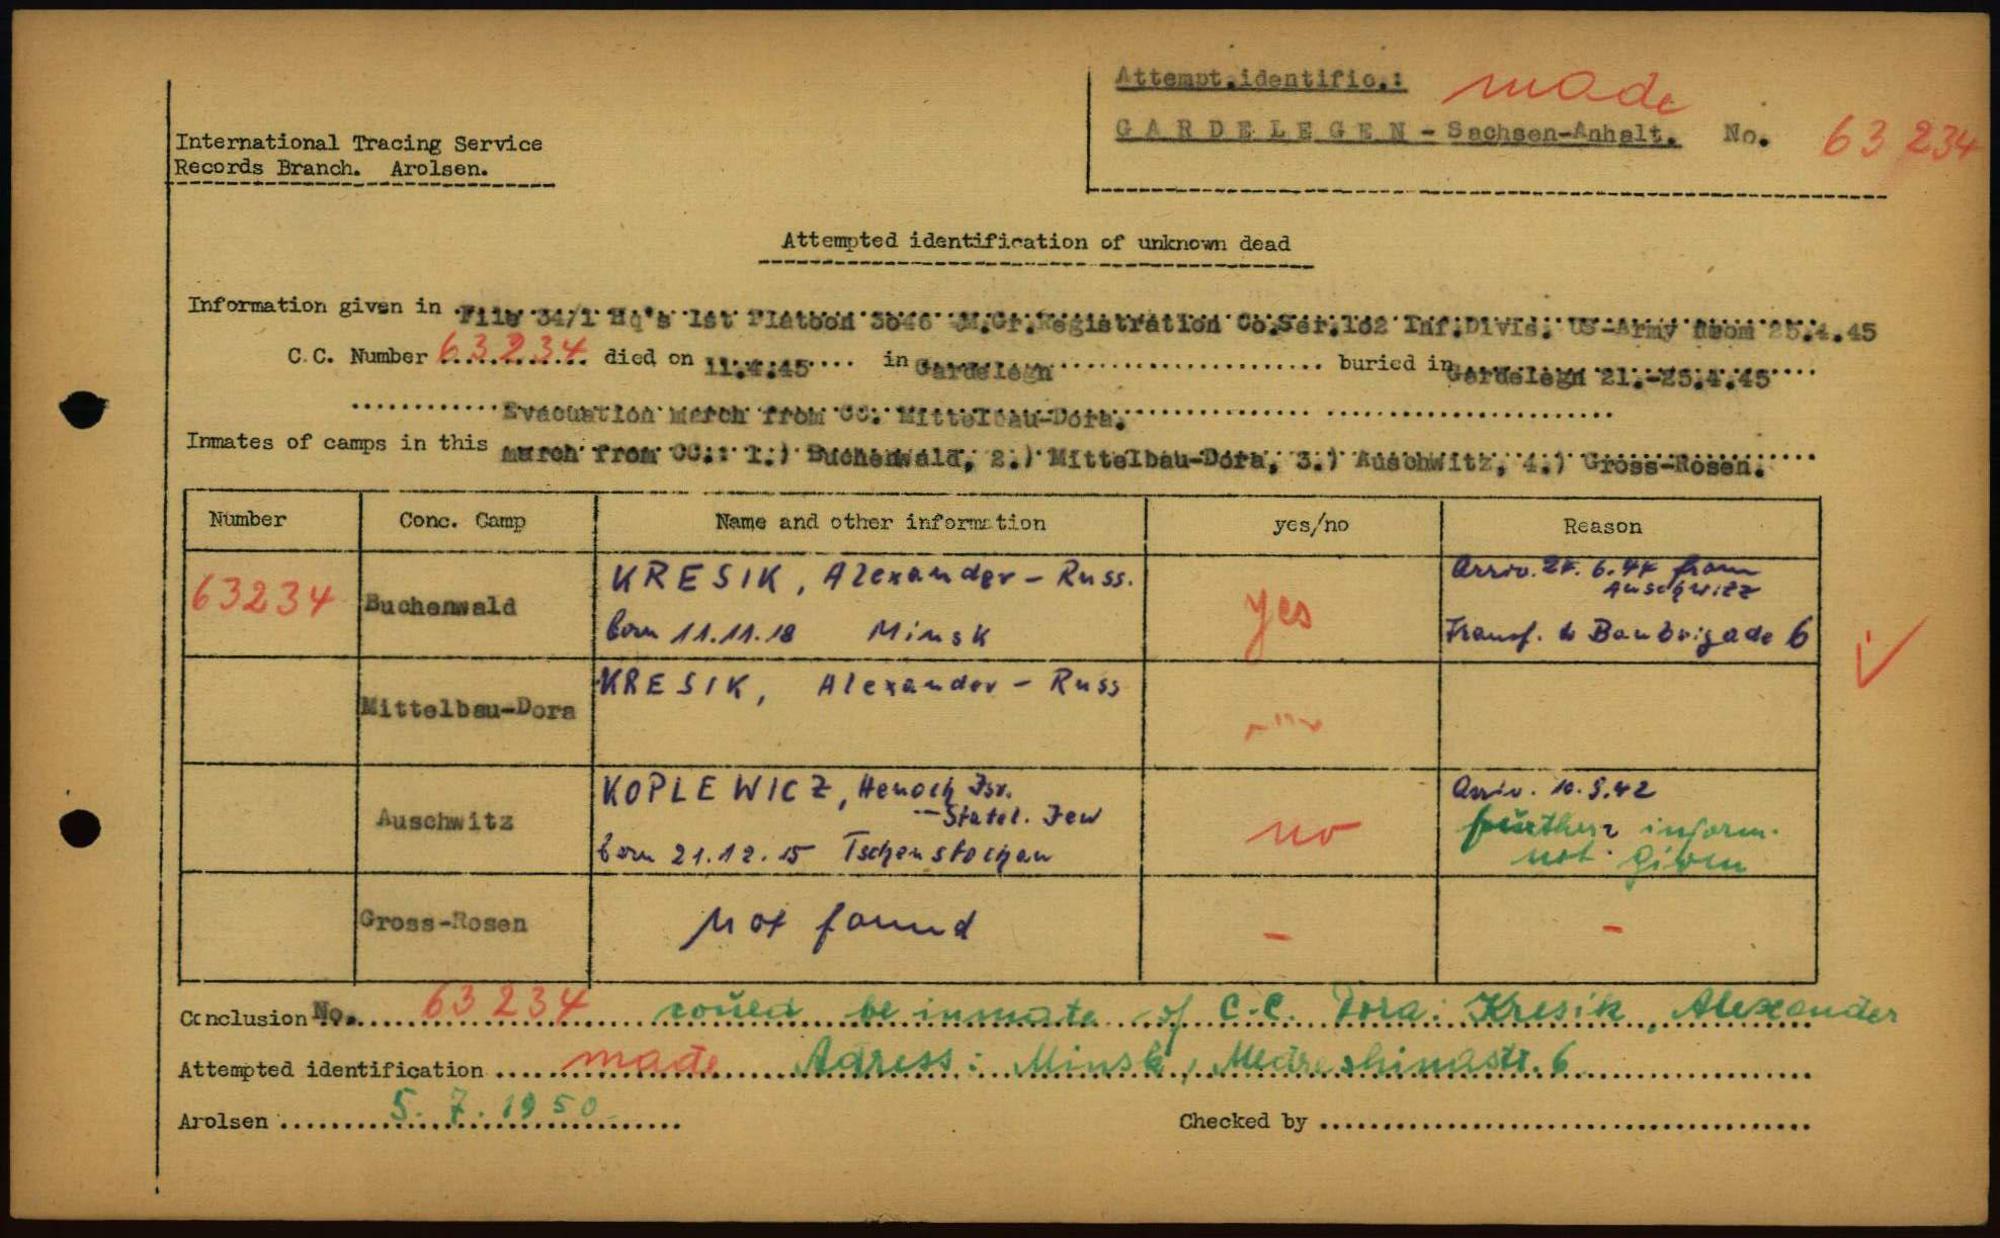 Attempt.identific.: made
GARDELEGEN - Sachsen-Anhalt. No. 63 234
International Tracing Service
Records Branch. Arolsen.
Attempted identification of unknown dead
Information given in File 34/1 Hq's 1st Platoon 3046 Gr.Registration Co.Ser.102 Inf.Divis. US-Army from 25.4.45
C.C. Number 63234 died on 11.4.45 in Gardelegn buried in Gardelegn 21.-25.4.45
Evacuation march from CC. Mittelbau-Dora.
Inmates of camps in this march from CC.: 1.) Buchenwald, 2.) Mittelbau-Dora, 3.) Auschwitz, 4.) Gross-Rosen.
Number Conc. Camp Name and other information yes/no Reason
63234 Buchenwald KRESIK, Alexander - Russ. yes Arriv. 24.6.44 from Auschwitz
born 11.11.18 Minsk Transf. to Baubrigade 6
Mittelbau-Dora KRESIK, Alexander - Russ -"-
Auschwitz KOPLEWICZ, Henoch Isr. no Arriv. 10.9.42
- Statel. Jew further inform.
born 21.12.15 Tschenstochau not given
Gross-Rosen Not found - -
Conclusion No. 63234 could be inmate of C.C. Dora: Kresik, Alexander
Attempted identification made Adress: Minsk, 6
Arolsen 5.7.1950 Checked by